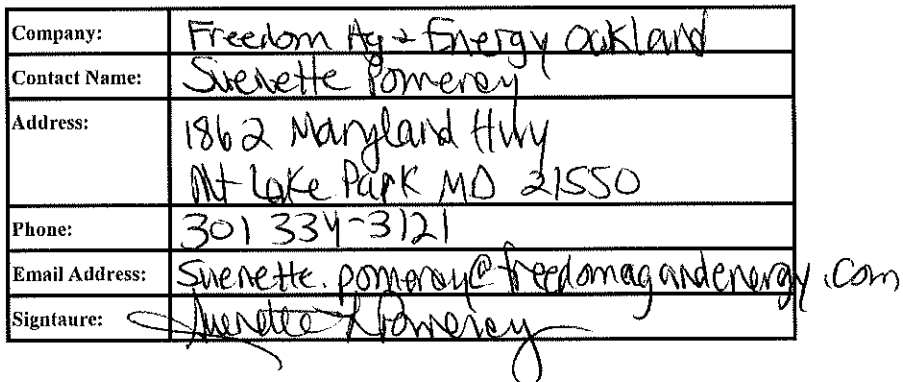 Company: Freedom Ag & Energy Oakland
Contact Name: Suenette Pomeroy
Address: 1862 Maryland Hwy
Mt Lake Park MD 21550
Phone: 301 334-3121
Email Address: Suenette.pomeroy@freedomagandenergy.com
Signtaure: Suenette L Pomeroy